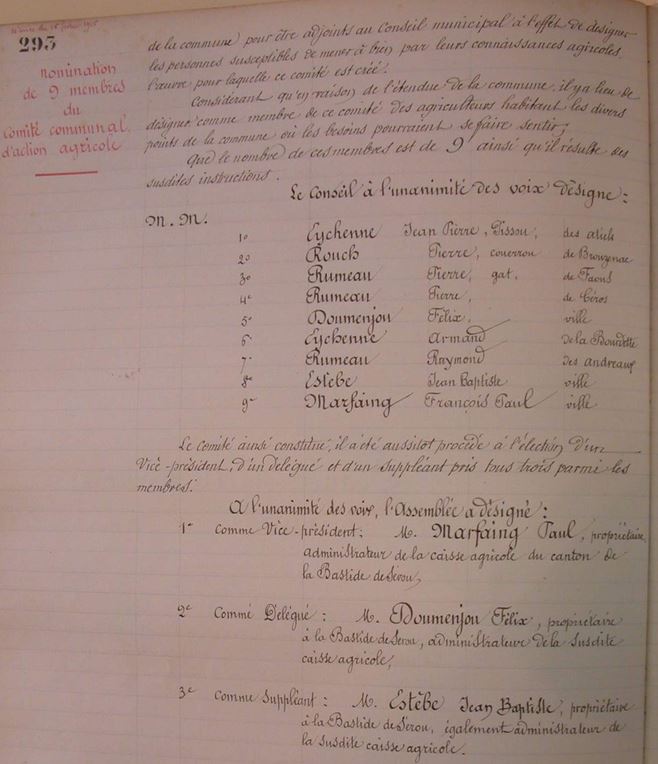 295
nomination
de 9 membres
du
Comité communal
d'action agricole
de la commune) pour être adjoints au Conseil municipal à l'effet de désigner
les personnes susceptibles de mener à bien par leurs connaissances agricoles
l'œuvre pour laquelle ce comité est créé.
Considérant qu'en raison de l'étendue de la commune, il y a lieu de
désigner comme membre de ce comité des agriculteurs habitant les divers
points de la commune où les besoins pourraient se faire sentir;
Que le nombre de ces membres est de 9 ainsi qu'il résulte des
susdites instructions.
Le Conseil à l'unanimité des voix désigne:
M. M.
1º Eychenne Jean Pierre, Pissou, des
2º Rouch Pierre, couerrou de Brouzenac
3º Rumeau Pierre, gat, de
4º Rumeau Pierre, de Céros
5º Doumenjou Félix, ville
6º Eychenne Armand de la Bourdette
7º Rumeau Raymond des andreaux
8º Estèbe Jean Baptiste ville
9º Marfaing François Paul ville
Le Comité ainsi constitué, il a été aussitot procédé à l'élection d'un
Vice-président, d'un délégué et d'un suppléant pris tous trois parmi les
membres.
A l'unanimité des voix, l'Assemblée a désigné:
1º comme Vice-président: M. Marfaing Paul, propriétaire,
administrateur de la caisse agricole du canton de
la Bastide de Sérou;
2º Comme Délégué: M. Doumenjou Félix, propriétaire
à la Bastide de Sérou, administrateur de la susdite
caisse agricole;
3º Comme suppléant: M. Estèbe Jean Baptiste, propriétaire
à la Bastide de Sérou, également administrateur de
la susdite caisse agricole.